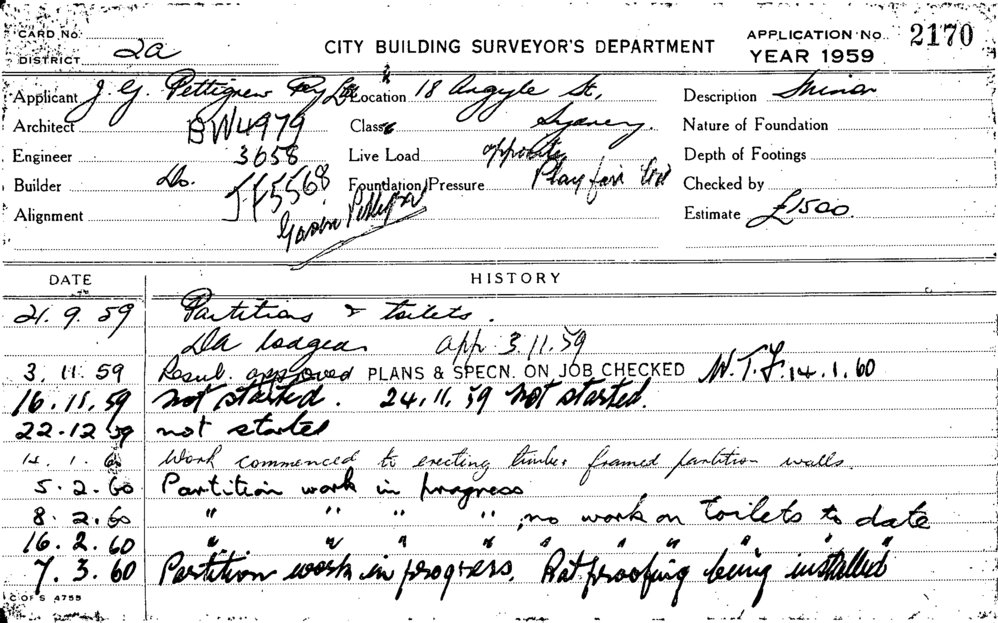 CARD No.
DISTRICT 2a
CITY BUILDING SURVEYOR'S DEPARTMENT
APPLICATION No. 2170
YEAR 1959
Applicant J. G. Pettigrew Pty Ltd
Location 18 Argyle St,
Description Minor
Architect BW4979
Class Sydney.
Nature of Foundation
Engineer 3658
Live Load opposite
Depth of Footings
Builder Do. JJ5568
Foundation Pressure Playfair
Checked by
Alignment
Estimate £1500
DATE HISTORY
21. 9. 59 Partitions & toilets.
DA lodged app 3.11.59
3. 11. 59 Resub. approved PLANS & SPECN. ON JOB CHECKED 14.1.60
16. 11. 59 not started. 24.11.59 Not started.
22. 12 59 not started
14. 1. 60 Work commenced to erecting timber framed partition walls.
5. 2. 60 Partition work in progress
8. 2. 60 " " " " ; no work on toilets to date
16. 2. 60 " " " " " " " " " "
7. 3. 60 Partition work in progress. Rat proofing being installed
C OF S 4755